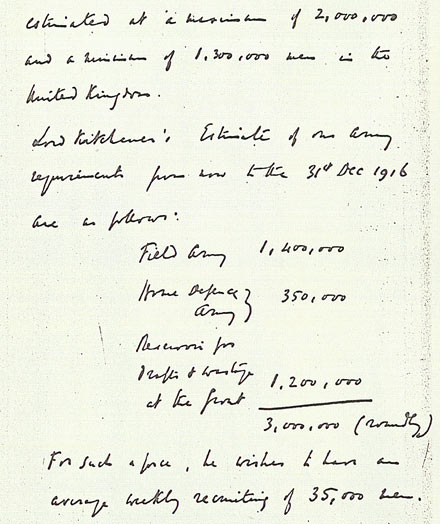 estimated at a maximum of 2,000,000
and a minimum of 1,300,000 men in the
United Kingdom.
Lord Kitchener's Estimate of our Army
requirements from now to the 31st Dec 1916
are as follows:
Field Army 1,400,000
Home Defence } 350,000
Army
Reservoir for
Drafts & wastage
at the front 1,200,000
3,000,000 (roundly)
For such a force, he wishes to have an
average weekly recruiting of 35,000 men.